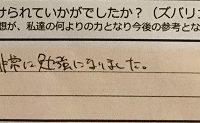 けられていかがでしたか？（ズバリ
想が、私達の何よりの力となり今後の参考とな
非常に勉強になりました。